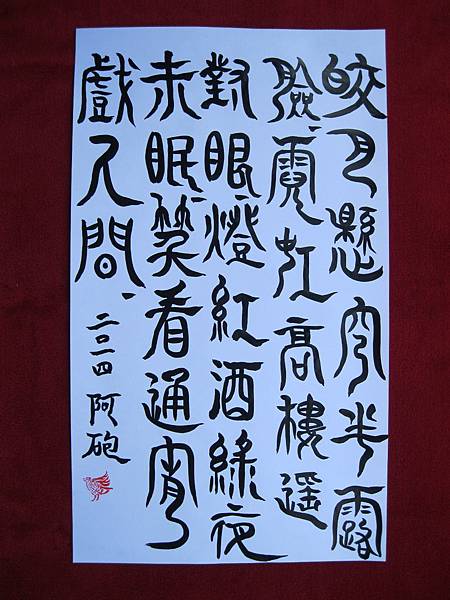 皎月懸穹半露
臉、霓虹高樓遙
對眼、燈紅酒綠夜
未眠、笑看通宵
戲人間、
二〇一四 阿砲